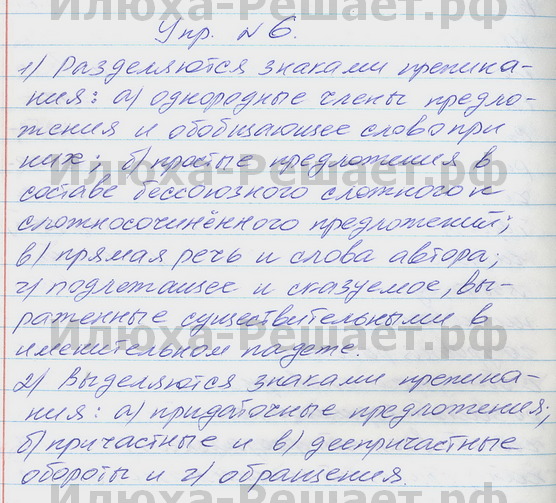 Илюха-Решает.рф
Упр. №6.
1) Разделяются знаками препина-
ния: а) однородные члены предло-
жения и обобщающее слово при
них; б) простые предложения в
составе бессоюзного сложного и
сложносочинённого предложений;
в) прямая речь и слова автора;
г) подлежащее и сказуемое, вы-
раженные существительными в
именительном падеже.
2) Выделяются знаками препина-
ния: а) придаточные предложения;
б) причастные и в) деепричастные
обороты и г) обращения.
Илюха-Решает.рф